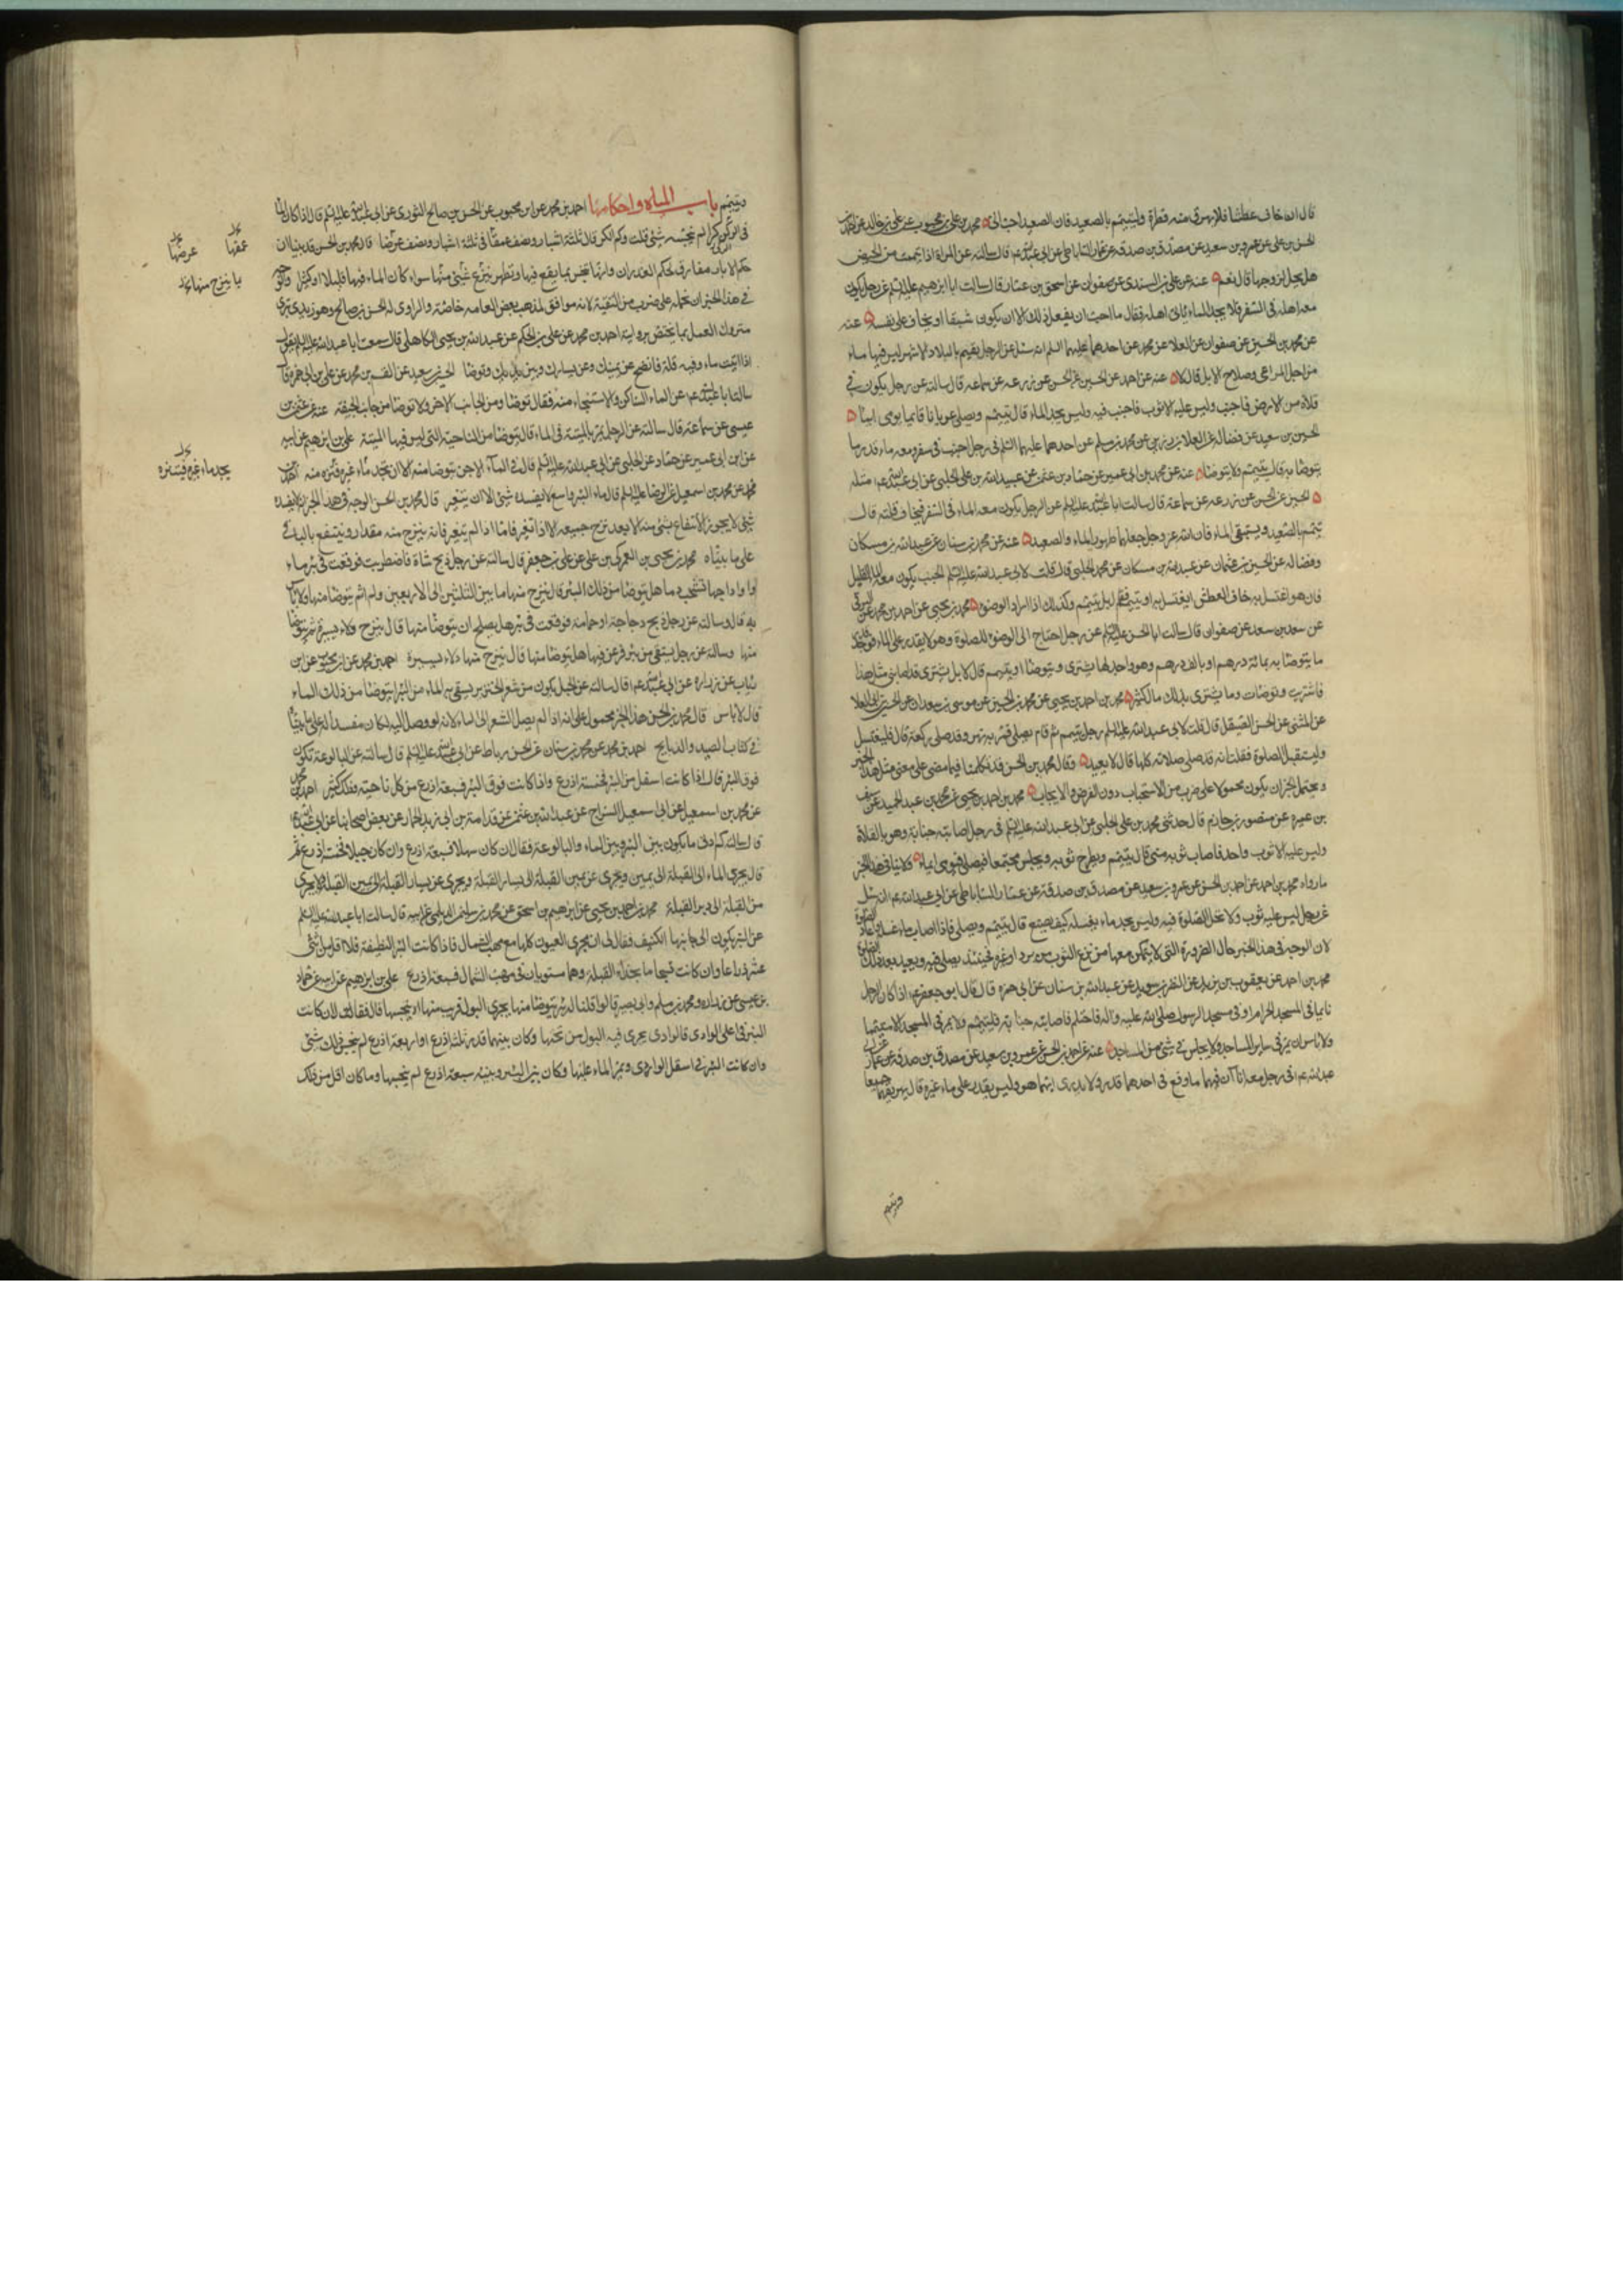 قال ان خاف عطشا فلا يهرق منه قطرة وليتيمم بالصعيد فان الصعيد احب الى محمد بن على بن محبوب عن على بن خالد عن احمد بن
الحسن بن على عن عمرو بن سعيد عن مصدق بن صدقة عن عمار الساباطى عن ابى عبدالله ع قال سالته عن المراة اذا تيممت من الحيض
هل يحل لزوجها قال نعم عنه عن على بن السندى عن صفوان عن اسحق بن عمار قال سالت ابا ابرهيم عليه السلم عن رجل يكون
معه اهله فى السفر فلا يجد الماء ياتى اهله فقال ما احب ان يفعل ذلك الا ان يكون شبقا او يخاف على نفسه عنه
عن محمد بن الحسين عن صفوان عن العلا عن محمد عن احدهما عليهما السلم انه سئل عن الرجل يقيم بالبلاد الاشهر ليس فيها ماء
من اجل المراعى وصلاح الابل قال لا عنه عن احمد عن الحسين عن الحسن عن زرعه عن سماعه قال سالته عن رجل يكون فى
فلاة من الارض فاجنب وليس عليه الا ثوب فاجنب فيه وليس يجد الماء قال يتيمم ويصلى عريانا قائما يومى ايماء
الحسين بن سعيد عن فضاله عن العلا بن رزين عن محمد بن مسلم عن احدهما عليهما السلم فى رجل اجنب فى سفر ومعه ماء قدر ما
يتوضا به قال يتيمم ولا يتوضا عنه عن محمد بن ابى عمير عن حماد بن عثمن عن عبيد الله بن على الحلبى عن ابى عبدالله ع مثله
الحسين عن الحسن عن زرعه عن سماعة قال سالت ابا عبدالله عليه السلم عن الرجل يكون معه الماء فى السفر فيخاف قلته قال
يتيمم بالصعيد ويستبقى الماء فان الله عز وجل جعلهما طهورا الماء والصعيد عنه عن محمد بن سنان عن عبدالله بن مسكان
وفضاله عن الحسين بن عثمان عن عبدالله بن مسكان عن محمد الحلبى قال قلت لابى عبدالله عليه السلم الجنب يكون معه الماء القليل
فان هو اغتسل به خاف العطش ايغتسل به او يتيمم قال بل يتيمم وكذلك اذا اراد الوضوء محمد بن يحيى عن احمد بن محمد عن البرقى
عن سعد بن سعد عن صفوان قال سالت ابا الحسن عليه السلم عن رجل احتاج الى الوضوء للصلوة وهو لا يقدر على الماء فوجد قدر
ما يتوضا به بمائة درهم او بالف درهم وهو واجد لها يشترى ويتوضا او يتيمم قال لا بل يشترى قد اصابنى مثل هذا
فاشتريت وتوضات وما يشترى بذلك مال كثير محمد بن احمد بن يحيى عن محمد بن الحسين عن موسى بن سعدان عن الحسين بن ابى العلا
عن المثنى عن الحسن الصيقل قال قلت لابى عبدالله عليه السلم رجل تيمم ثم قام يصلى فمر به نهر وقد صلى ركعة قال فليغتسل
وليستقبل الصلوة فقلت انه قد صلى صلاته كلها قال لا يعيد وقال محمد بن الحسن قد تكلمنا فيما مضى على معنى مثل هذا الخبر
ويحتمل الخبر ان يكون محمولا على ضرب من الاستحباب دون الفرض والايجاب محمد بن احمد بن يحيى عن محمد بن عبد الحميد عن سيف
بن عميره عن منصور بن حازم قال حدثنى محمد بن على الحلبى عن ابى عبدالله عليه السلم فى رجل اصابته جنابة وهو بالفلاة
وليس عليه الا ثوب واحد فاصاب ثوبه منى قال يتيمم ويطرح ثوبه ويجلس مجتمعا فيصلى فيومى ايماء ولا ينافى هذا الخبر
ما رواه محمد بن احمد عن احمد بن الحسن عن عمرو بن سعيد عن مصدق بن صدقة عن عمار الساباطى عن ابى عبدالله ع انه سئل
عن رجل ليس عليه ثوب ولا تحل الصلوة فيه وليس يجد ماء يغسله كيف يصنع قال يتيمم ويصلى فاذا اصاب ماء غسله واعاد الصلوة
لان الوجه فى هذا الخبر حال الضرورة التى لا يتمكن معها من نزع الثوب من برد او غيره فحينئذ يصلى فيه ويعيد بعد ذلك الصلوة
محمد بن احمد عن يعقوب بن يزيد عن النظر بن سويد عن عبدالله بن سنان عن ابى حمزه قال قال ابو جعفر ع اذا كان الرجل
نائما فى المسجد الحرام او فى مسجد الرسول صلى الله عليه واله فاحتلم فاصابته جنابة فليتيمم ولا يمر فى المسجد الا متيمما
ولا باس ان يمر فى ساير المساجد ولا يجلس فى شئ من المساجد عنه عن احمد بن الحسن عن عمرو بن سعيد عن مصدق بن صدقة عن عمار عن ابى
عبدالله ع فى رجل معه اناآن فيهما ماء وقع فى احدهما قذر ولا يدرى ايهما هو وليس يقدر على ماء غيره قال يهريقهما جميعا
ويتيمم
ويتيمم باب المياه واحكامها احمد بن محمد عن ابن محبوب عن الحسن بن صالح الثورى عن ابى عبدالله عليه السلم قال اذا كان الماء
فى الركى كرا لم ينجسه شئ قلت وكم الكر قال ثلثة اشبار ونصف عمقا فى ثلثة اشبار ونصف عرضا قال محمد بن الحسن قد بينا ان
حكم الابار مفارق لحكم الغدران وانها تنجس بما يقع فيها وتطهر بنزح شئ منها سواء كان الماء فيها قليلا او كثيرا والوجه
فى هذا الخبر ان نحمله على ضرب من التقية لانه موافق لمذهب بعض العامه خاصة والراوى له الحسن بن صالح وهو زيدى بترى
متروك العمل بما يختص بروايته احمد بن محمد عن على بن الحكم عن عبدالله بن يحيى الكاهلى قال سمعت ابا عبدالله عليه السلم يقول
اذا اتيت ماء وفيه قلة فانضح عن يمينك وعن يسارك وبين يديك وتوضا الحسين بن سعيد عن القسم بن محمد عن على بن ابى حمزه قال
سالت ابا عبدالله ع عن الماء الساكن والاستنجاء منه فقال توضا ومن الجانب الاخر ولا توضا من جانب الجيفه عنه عن عثمن بن
عيسى عن سماعة قال سالته عن الرجل يمر بالميتة فى الماء قال يتوضا من الناحية التى ليس فيها الميتة على بن ابرهيم عن ابيه
عن ابن ابى عمير عن حماد عن الحلبى عن ابى عبدالله عليه السلم قال فى الماء الاجن يتوضا منه الا ان تجد ماء غيره فتنزه منه احمد بن
محمد عن محمد بن اسمعيل عن الرضا عليه السلم قال ماء البئر واسع لا يفسده شئ الا ان يتغير قال محمد بن الحسن الوجه فى هذا الخبر انه لا يفسده
شئ لا يجوز الانتفاع بشئ منه الا بعد نزح جميعه الا اذا تغير فاما اذا لم يتغير فانه ينزح منه مقدار وينتفع بالباقى
على ما بيناه محمد بن يحيى بن العمركى بن على عن على بن جعفر قال سالته عن رجل ذبح شاة فاضطربت فوقعت فى بئر ماء
واوداجها تشخب دما هل يتوضا من ذلك البئر قال ينزح منها ما بين الثلثين الى الاربعين دلوا ثم يتوضا منها ولا باس
به قال وسالته عن رجل ذبح دجاجة او حمامة فوقعت فى بئر هل يصلح ان يتوضا منها قال ينزح دلاء يسيرة ثم يتوضا
منها وسالته عن رجل يستقى من بئر فرعف فيها هل يتوضا منها قال ينزح منها دلاء يسيرة احمد بن محمد عن ابن محبوب عن ابن
رئاب عن زراره عن ابى عبدالله ع قال سالته عن الحبل يكون من شعر الخنزير يستقى به الماء من البئر ايتوضا من ذلك الماء
قال لا باس قال محمد بن الحسن هذا الخبر محمول على انه اذا لم يصل الشعر الى الماء لانه لو وصل اليه لكان مفسدا له على ما بيناه
فى كتاب الصيد والذبايح احمد بن محمد عن محمد بن سنان عن الحسن بن رباط عن ابى عبدالله عليه السلم قال سالته عن البالوعة تكون
فوق البئر قال اذا كانت اسفل من البئر فخمسة اذرع واذا كانت فوق البئر فسبعة اذرع من كل ناحية وذلك كثير احمد بن محمد
عن محمد بن اسمعيل عن ابى اسمعيل السراج عن عبدالله بن عثمن عن قدامة بن ابى يزيد الحمار عن بعض اصحابنا عن ابى عبدالله ع
قال سالته كم ادنى ما يكون بين البئر وبين الماء والبالوعة فقال ان كان سهلا فسبعة اذرع وان كان جبلا فخمسة اذرع ثم
قال يجرى الماء الى القبلة الى يمين ويجرى عن يمين القبلة الى يسار القبلة ويجرى عن يسار القبلة الى يمين القبلة ولا يجرى
من القبلة الى دبر القبلة محمد بن احمد بن يحيى عن ابرهيم بن اسحق عن محمد بن سليمن الديلمى عن ابيه قال سالت ابا عبدالله عليه السلم
عن البئر يكون الى جانبها الكنيف فقال لى ان مجرى العيون كلها مع مهب الشمال فاذا كانت البئر النظيفة فلا اقل من اثنى
عشر ذراعا وان كانت تجاها بحذاء القبلة وهما مستويان فى مهب الشمال فسبعة اذرع على بن ابرهيم عن ابيه عن حماد
بن عيسى عن زراره ومحمد بن مسلم وابى بصير قالوا قلنا له بئر يتوضا منها يجرى البول قريب منها اينجسها قال فقال ان كانت
البئر فى اعلى الوادى فالوادى يجرى فيه البول من تحتها وكان بينهما قدر ثلثة اذرع او اربعة اذرع لم ينجس ذلك شئ
وان كانت البئر فى اسفل الوادى ويمر الماء عليها وكان بين البئر وبينه سبعة اذرع لم ينجسها وما كان اقل من ذلك
عمقها
عرضها
ما ينزح منها
يجد ماء غيره فيتنزه